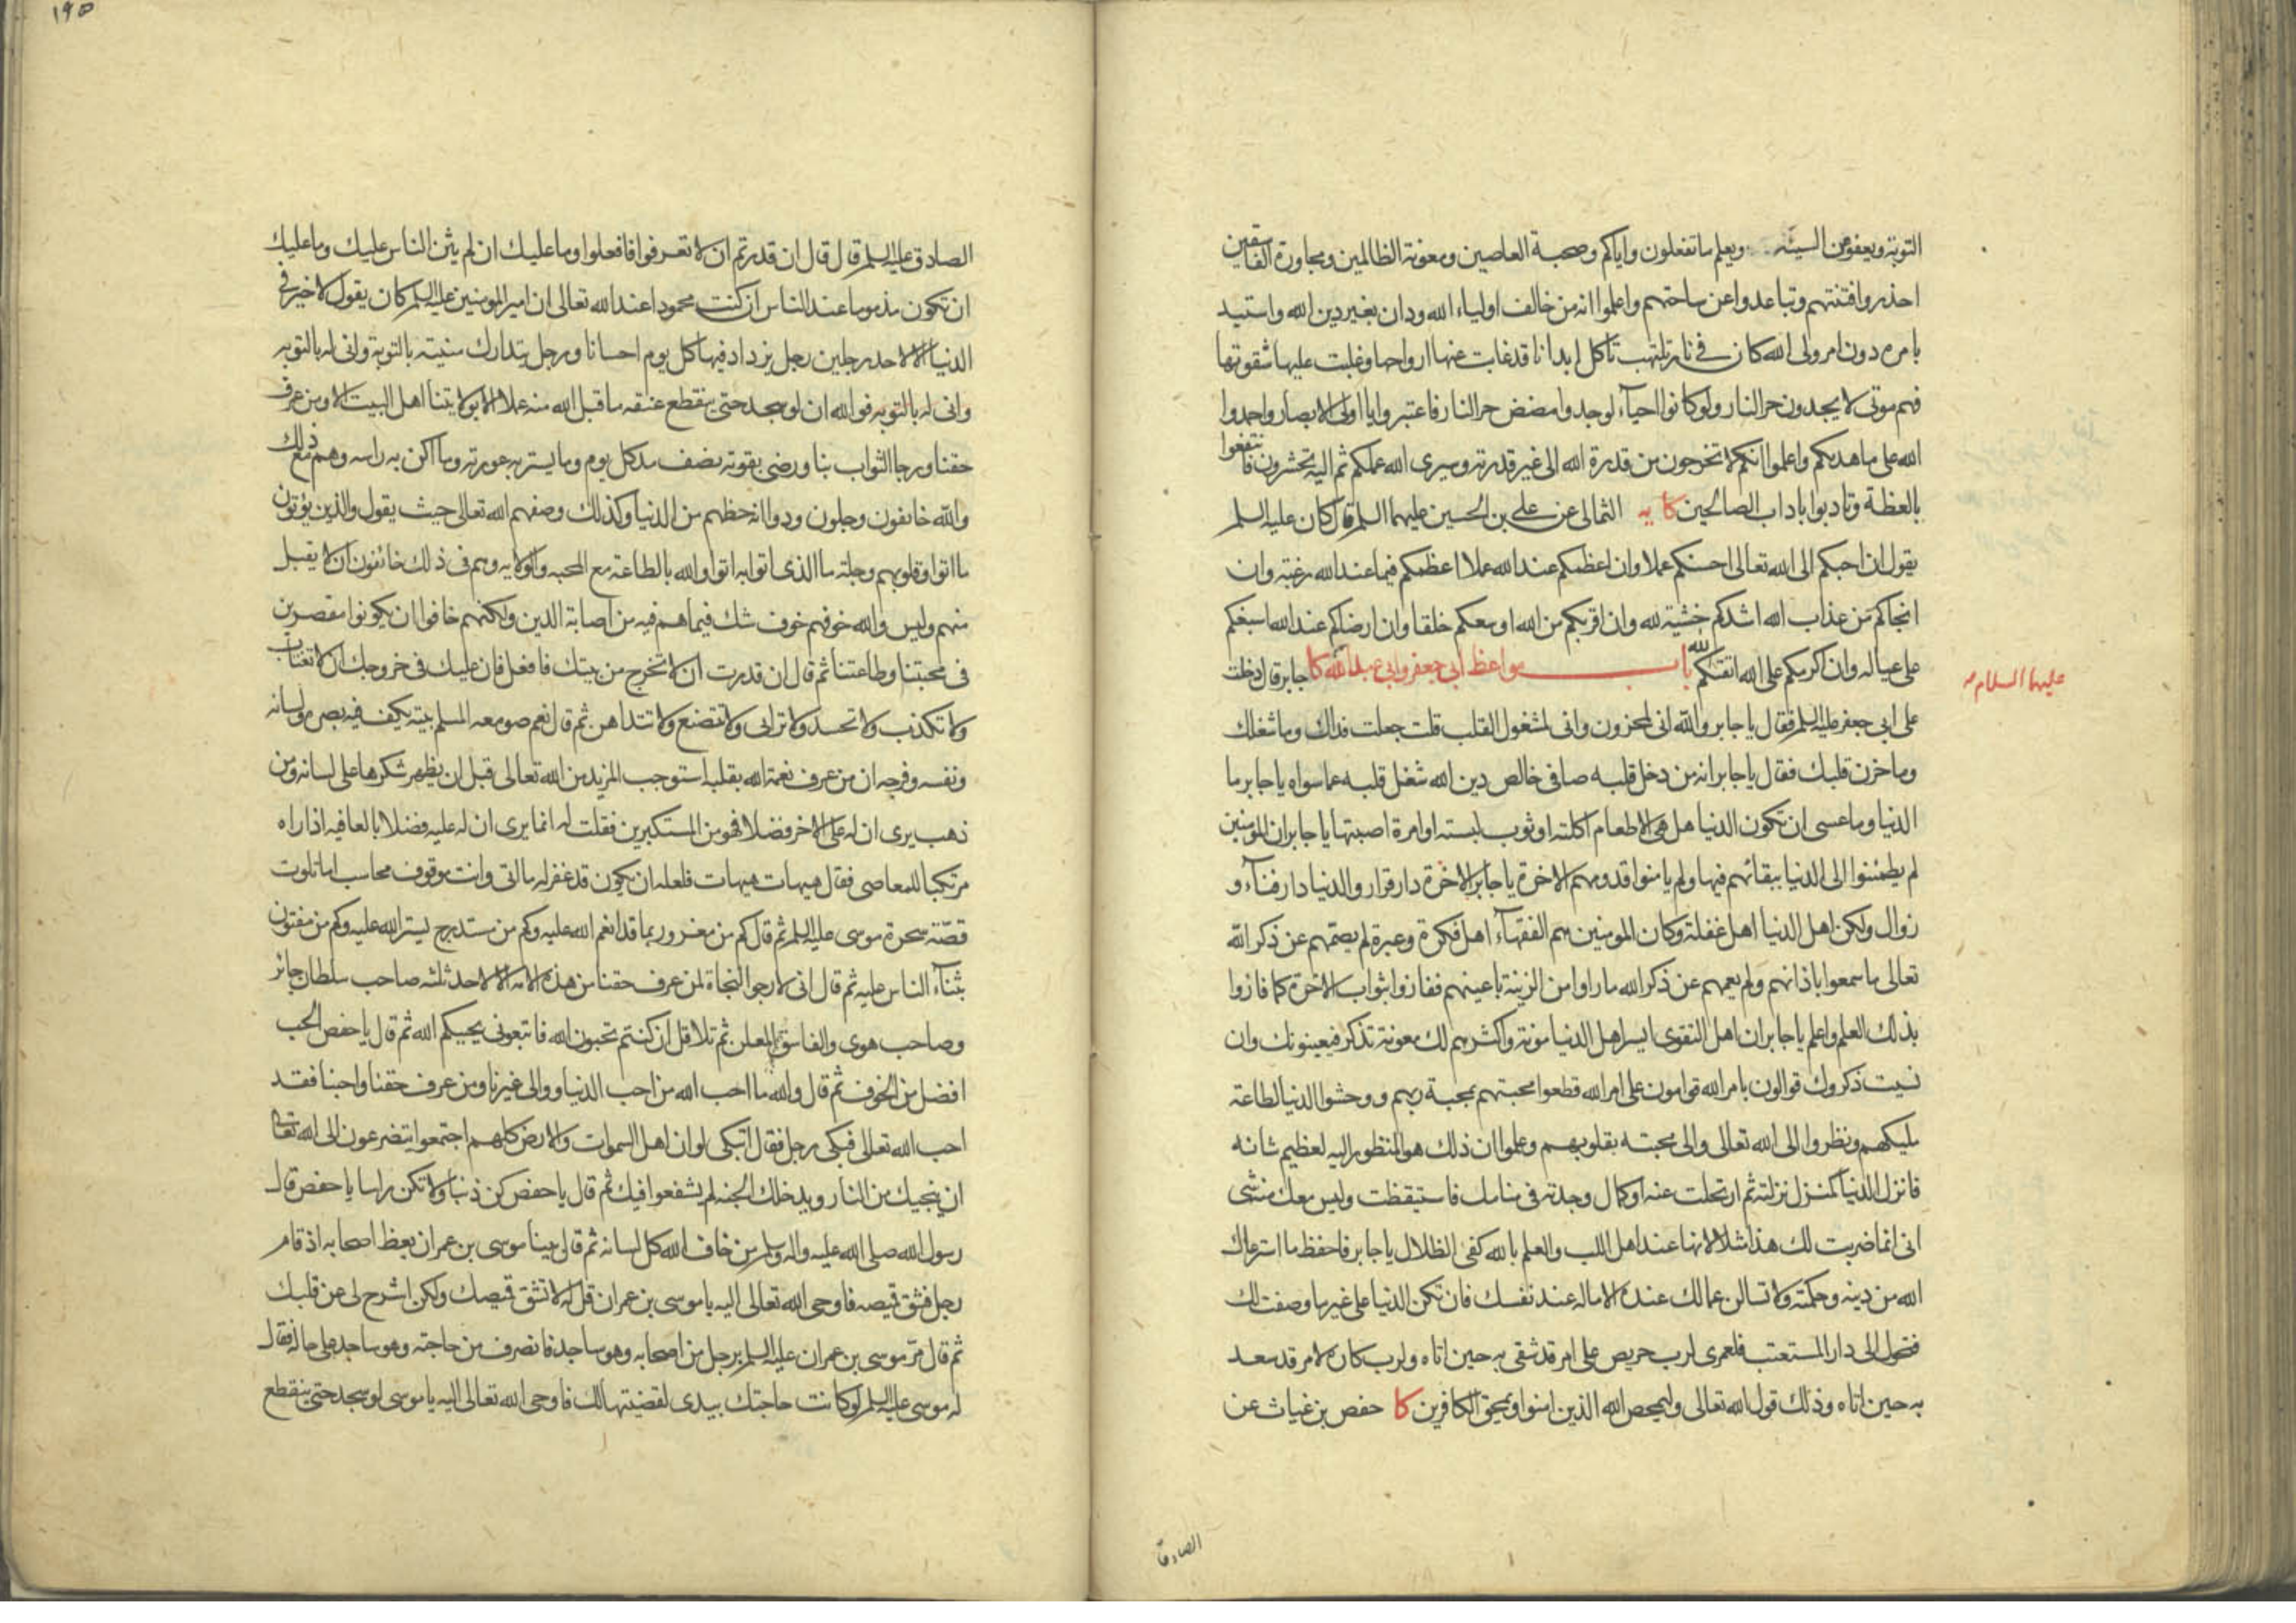 التوبة ويعفو عن السيئة ويعلم ما تفعلون واياكم وصحبة العاصين ومعونة الظالمين ومجاورة الفاسقين
احذروا فتنتهم وتباعدوا عن ساحتهم واعلموا انه من خالف اولياء الله ودان بغير دين الله واستبد
بامره دون امر ولى الله كان فى نار تلتهب تاكل ابدانا قد غابت عنها ارواحها وغلبت عليها شقوتها
فهم موتى لا يجدون حر النار ولو كانوا احياء لوجدوا مضض حر النار فاعتبروا يا اولى الابصار واحمدوا
الله على ما هديكم واعلموا انكم لا تخرجون من قدرة الله الى غير قدرته وسيرى الله عملكم ثم اليه تحشرون فانتفعوا
بالعظة وتادبوا باداب الصالحين كا يه الثمالى عن على بن الحسين عليهما السلم قال كان عليه السلم
يقول ان احبكم الى الله تعالى احسنكم عملا وان اعظمكم عند الله عملا اعظمكم فيما عند الله رغبة وان
انجاكم من عذاب الله اشدكم خشية لله وان اقربكم من الله اوسعكم خلقا وان ارضاكم عند الله اسبغكم
على عياله وان اكرمكم على الله اتقيكم لله باب مواعظ ابى جعفر وابى عبد الله كا جابر قال دخلت
عليهما السلام
على ابى جعفر عليه السلم فقال يا جابر والله انى لمحزون وانى لمشغول القلب قلت جعلت فداك وما شغلك
وما حزن قلبك فقال يا جابر انه من دخل قلبه صافى خالص دين الله شغل قلبه عما سواه يا جابر ما
الدنيا وما عسى ان تكون الدنيا هل هى الا طعام اكلته او ثوب لبسته او امرة اصبتها يا جابر ان المومنين
لم يطمئنوا الى الدنيا ببقائهم فيها ولم يامنوا قدومهم الاخرة يا جابر الاخرة دار قرار والدنيا دار فناء و
زوال ولكن اهل الدنيا اهل غفلة وكان المومنين هم الفقهاء اهل فكرة وعبرة لم يصمهم عن ذكر الله
تعالى ما سمعوا باذانهم ولم يعمهم عن ذكر الله ما راوا من الزينة باعينهم ففازوا بثواب الاخرة كما فازوا
بذلك العلم واعلم يا جابر ان اهل التقوى ايسر اهل الدنيا مونة واكثرهم لك معونة تذكر فيعينونك وان
نسيت ذكروك قوالون بامر الله قوامون على امر الله قطعوا محبتهم بمحبة ربهم ووحشوا الدنيا لطاعة
مليكهم ونظروا الى الله تعالى والى محبته بقلوبهم وعلموا ان ذلك هو المنظور اليه لعظيم شانه
فانزل الدنيا كمنزل نزلته ثم ارتحلت عنه او كمال وجدته فى منامك فاستيقظت وليس معك منه شى
انى انما ضربت لك هذا مثلا لانها عند اهل اللب والعلم بالله كفئ الظلال يا جابر فاحفظ ما استرعاك
الله من دينه وحكمته ولا تسالن عما لك عنده الا ما له عند نفسك فان تكن الدنيا على غير ما وصفت لك
فتحول الى دار المستعتب فلعمرى لرب حريص على امر قد شقى به حين اتاه ولرب كاره لامر قد سعد
به حين اتاه وذلك قول الله تعالى وليمحص الله الذين امنوا ويمحق الكافرين كا حفص بن غياث عن
الصادق
١٩٥
الصادق عليه السلم قال قال ان قدرتم ان لا تعرفوا فافعلوا وما عليك ان لم يثن الناس عليك وما عليك
ان تكون مذموما عند الناس ان كنت محمودا عند الله تعالى ان امير المومنين عليه السلم كان يقول لا خير فى
الدنيا الا لاحد رجلين رجل يزداد فيها كل يوم احسانا ورجل يتدارك منيته بالتوبة وانى له بالتوبه
وانى له بالتوبه فوالله ان لو سجد حتى ينقطع عنقه ما قبل الله منه عملا الا بولايتنا اهل البيت الا ومن عرف
حقنا ورجا الثواب بنا ورضى بقوته نصف مد كل يوم وما يستر به عورته وما اكن به راسه وهم مع ذلك
والله خائفون وجلون ودوا انه حظهم من الدنيا وكذلك وصفهم الله تعالى حيث يقول والذين يؤتون
ما اتوا وقلوبهم وجلة ما الذى اتوا به اتوا والله بالطاعة مع المحبه والولايه وهم فى ذلك خائفون ان لا يقبل
منهم وليس والله خوفهم خوف شك فيما هم فيه من اصابة الدين ولكنهم خافوا ان يكونوا مقصرين
فى محبتنا وطاعتنا ثم قال ان قدرت ان لا تخرج من بيتك فافعل فان عليك فى خروجك ان لا تغتاب
ولا تكذب ولا تحسد ولا ترائى ولا تتصنع ولا تتداهن ثم قال نعم صومعه المسلم بيته يكف فيه بصره ولسانه
ونفسه وفرجه ان من عرف نعمة الله بقلبه استوجب المزيد من الله تعالى قبل ان يظهر شكرها على لسانه ومن
ذهب يرى ان له على الاخر فضلا فهو من المستكبرين فقلت له انما يرى ان له عليه فضلا بالعافيه اذا راه
مرتكبا للمعاصى فقال هيهات هيهات فلعله ان يكون قد غفر له ما اتى وانت موقوف محاسب اما تلوت
قصة سحرة موسى عليه السلم ثم قال كم من مغرور بما قد انعم الله عليه وكم من مستدرج يستر الله عليه وكم من مفتون
بثناء الناس عليه ثم قال انى لارجو النجاة لمن عرف حقنا من هذه الامه الا لاحد ثلثه صاحب سلطان جائر
وصاحب هوى والفاسق المعلن ثم تلا قل ان كنتم تحبون الله فاتبعونى يحببكم الله ثم قال يا حفص الحب
افضل من الخوف ثم قال والله ما احب الله من احب الدنيا ووالى غيرنا ومن عرف حقنا واحبنا فقد
احب الله تعالى فبكى رجل فقال اتبكى لو ان اهل السموات والارض كلهم اجتمعوا يتضرعون الى الله تعالى
ان ينجيك من النار ويدخلك الجنه لم يشفعوا فيك ثم قال يا حفص كن ذنبا ولا تكن راسا يا حفص قال
رسول الله صلى الله عليه واله وسلم من خاف الله كل لسانه ثم قال بينا موسى بن عمران يعظ اصحابه اذ قام
رجل فشق قميصه فاوحى الله تعالى اليه يا موسى بن عمران قل له لا تشق قميصك ولكن اشرح لى عن قلبك
ثم قال مر موسى بن عمران عليه السلم برجل من اصحابه وهو ساجد فانصرف من حاجته وهو ساجد على حاله فقال
له موسى عليه السلم لو كانت حاجتك بيدى لقضيتها لك فاوحى الله تعالى اليه يا موسى لو سجد حتى ينقطع